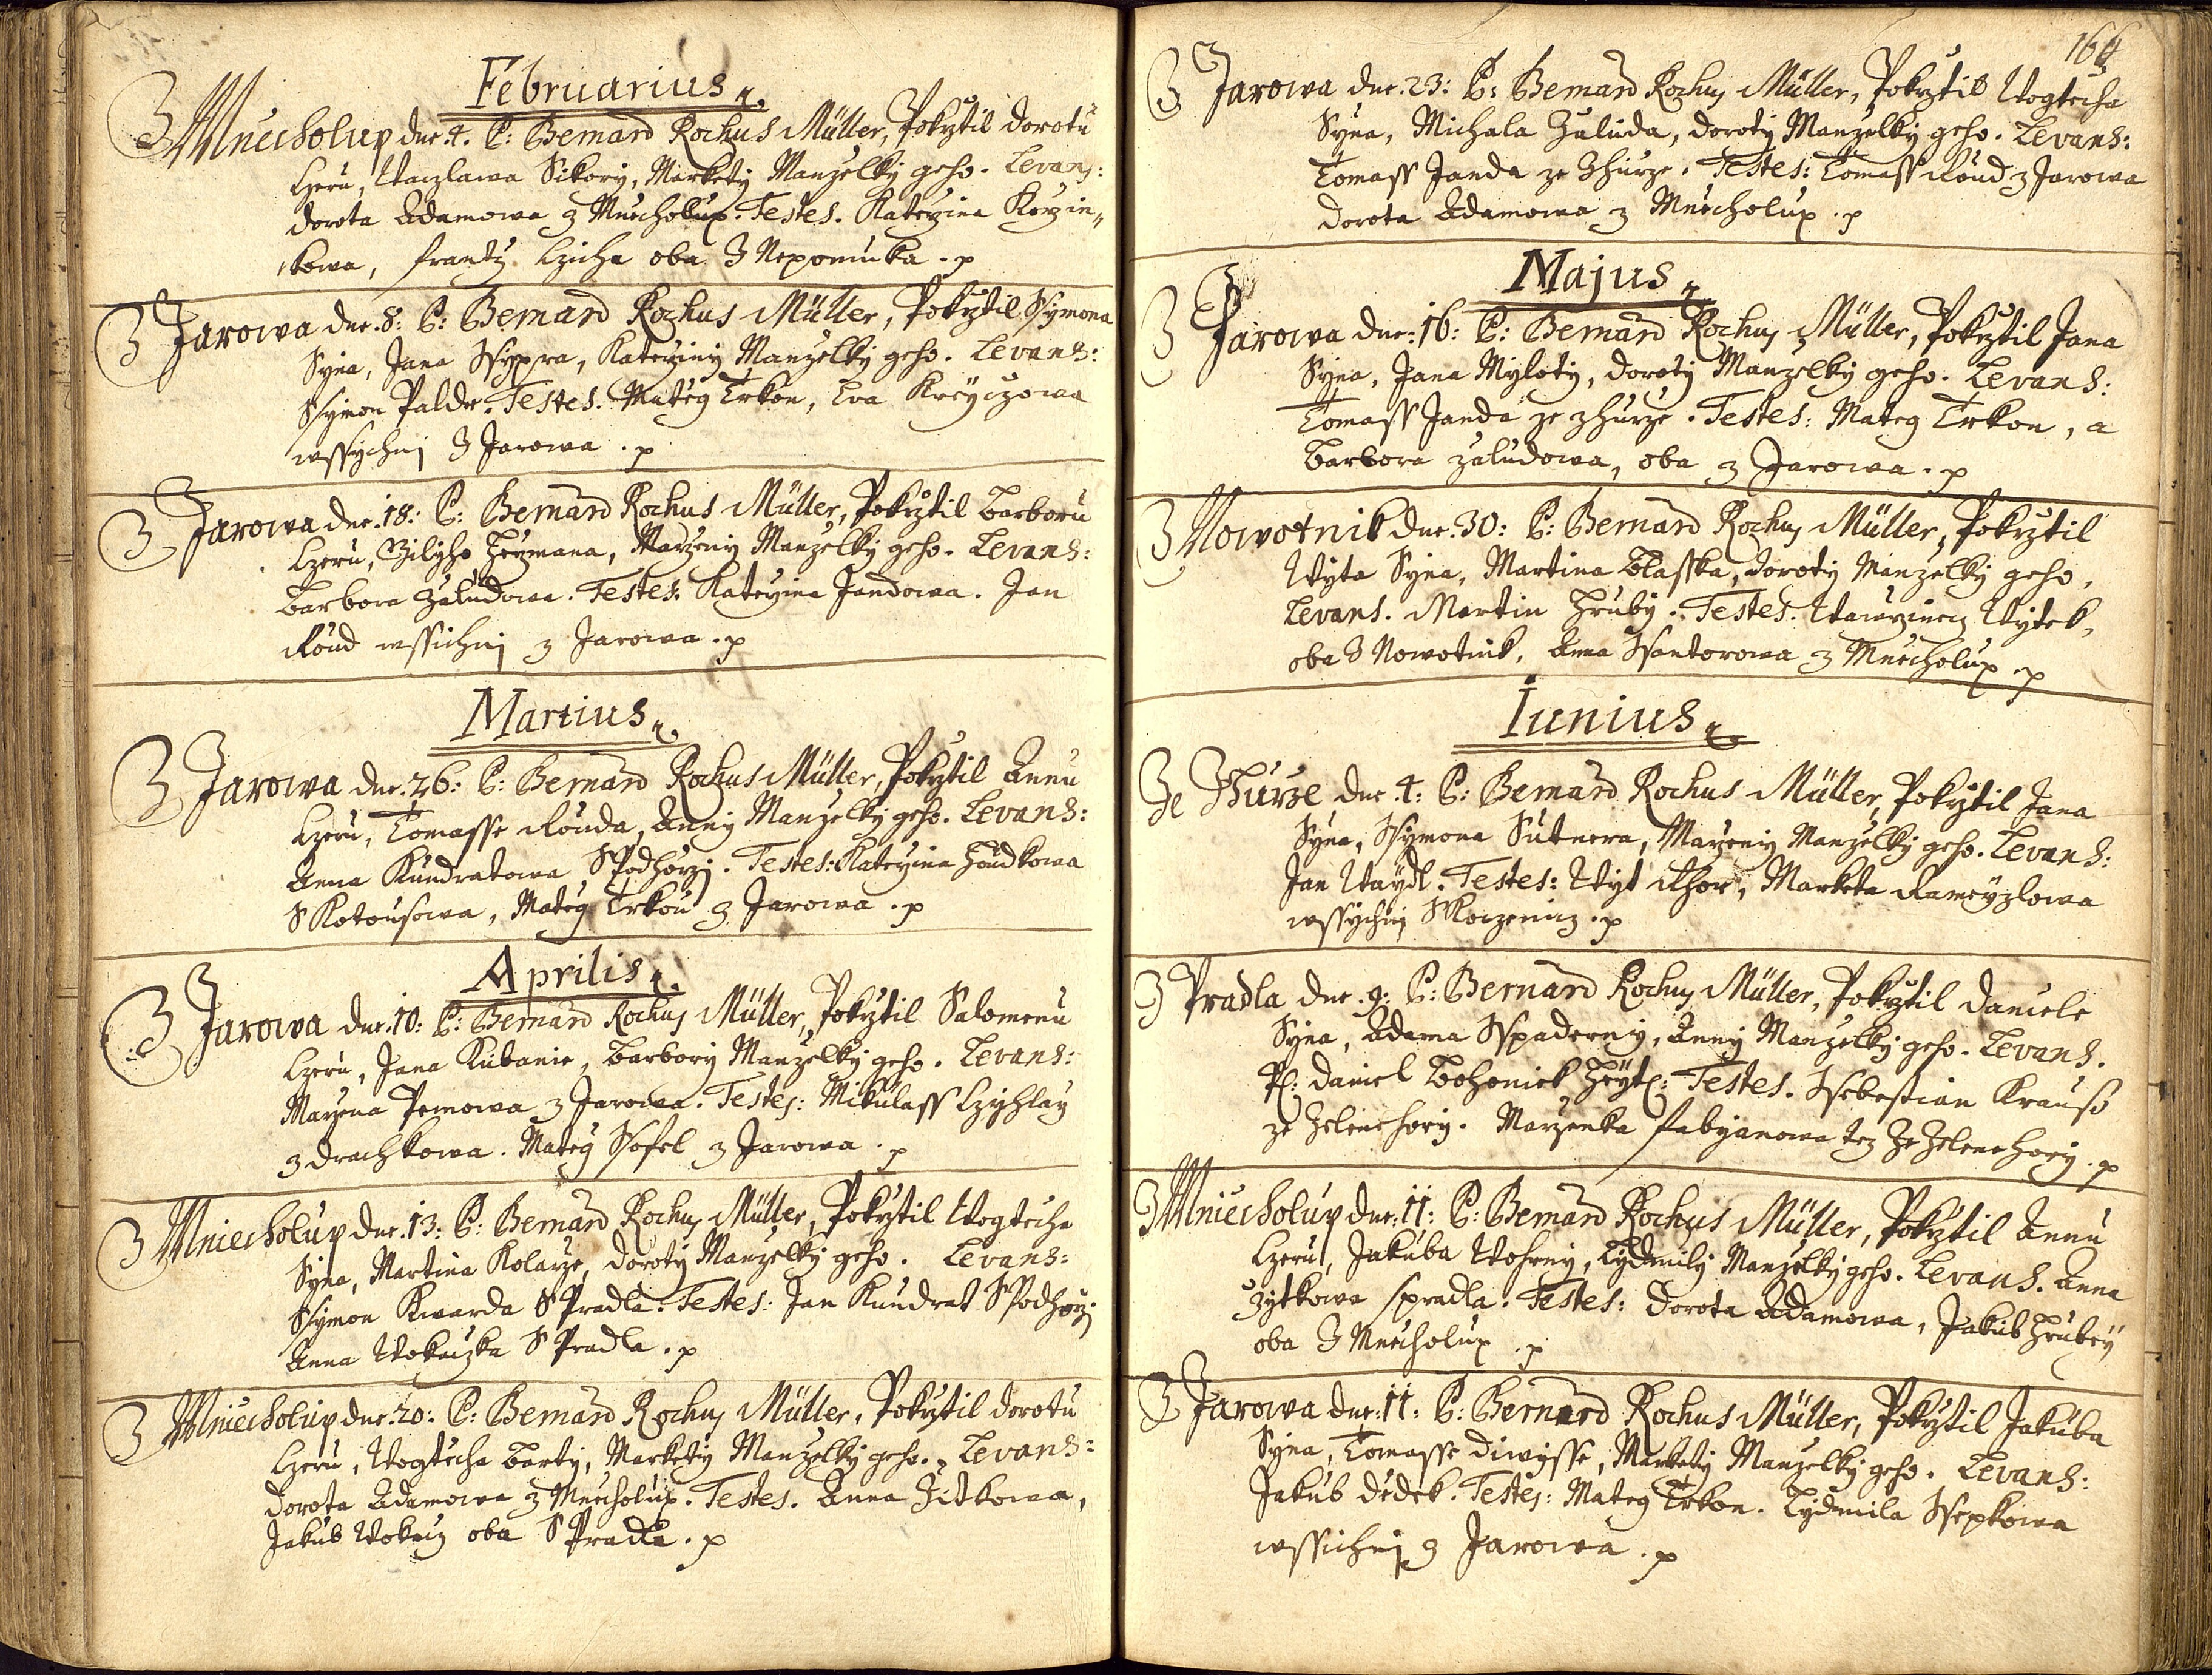 Februarius
Z Mnecholup dne. 4. P: Bernard Rochus Müller, Pokrztil dorotu
Czeru, Waczlawa Sikory, Markety Manzelky geho. Levans:
dorota Adamowa z Mnecholup. Testes. Katerzina Korzin„
kowa, frantz Czicha oba Z Nepomuka . p
Z Jarowa dne. 8: P: Bernard Rochus Müller, Pokrztil Ssymona
Syna, Jana Katerziny Manzelky geho. Levans:
Ssymon Palder. Testes. Mateg Trkon, Eva Kreyczowa
wssychnj Z Jarowa . p
Z Jarowa dne. 18: P: Bernard Rochus Müller, Pokrztil Barboru
Czeru, Gilyho Hermana, Marzeny Manzelky geho. Levans:
Barbora Zaludowa. Testes. Katerzina Jandowa. Jan
Roud wssichnj z Jarowa . p
Martius
Z Jarowa dne. 26: P: Bernard Rochus Müller, Pokrztil Annu
Czeru, Tomasse Rouda, Anny Manzelky geho. Levans:
Anna Kundratowa S Podhorzj. Testes: Katerzina Houdkowa
S Kotousowa, Mateg Trkou z Jarowa . p
Aprilis
Z Jarowa dne. 10: P: Bernard Rochus Müller, Pokrztil Salomenu
Czeru, Jana Kubanie, Barbory Manzelky geho. Levans:
Marzena Pemowa z Jarowa. Testes: Mikulass Czyhlarz
z drachkowa. Mateg Ssofel z Jarowa . p
Z Mniecholup dne. 13: P: Bernard Rochus Müller, Pokrztil Wogtecha
Syna, Martina Kolarze, doroty Manzelky geho. Levans:
Ssymon Kwarda S Pradla. Testes: Jan Kundrat S Podhorzj
Anna Wokaczka S Pradla . p
Z Mniecholup dne. 20: P: Bernard Rochus Müller, Pokrztil dorotu
Czeru, Wogtecha Barty, Markety Manzelky geho. Levans:
dorota Adamowa z Mnecholup. Testes. Anna Zitkowa,
Jakub Wokacz oba S Pradla . p
166
Z Jarowa dne. 23: P: Bernard Rochus Müller, Pokrztil Wogtecha
Syna, Michala Zaluda, doroty Manzelky geho. Levans:
Tomass Janda ze Zhurze. Testes: Tomass Roud z Jarowa
dorota Adamowa z Mnecholup . p
Majus
Z Jarowa dne: 16: P: Bernard Rochus Müller, Pokrztil Jana
Syna, Jana Myloty, doroty Manzelky geho. Levans:
Tomass Janda ze zhurze. Testes: Mateg Trkon, a
Barbora Zaludowa, oba z Jarowa . p
Z Nowotnik dne. 30: P: Bernard Rochus Müller, Pokrztil
Wyta Syna, Martina Blasska, doroty Manzelky geho,
Levans. Martin Hruby. Testes. Wawrzinecz Wytek,
oba Z Nowotnik, Anna Ssantorowa z Mnecholup . p
Iunius
Ze Zhurze dne. 4: P: Bernard Rochus Müller, Pokrztil Jana
Syna, Ssymona Sutnera, Marzeny Manzelky geho. Levans:
Jan Waydl. Testes: Wyt Marketa
wssychnj . p
Z Pradla dne. 9: P: Bernard Rochus Müller, Pokrztil Daniele
Syna, Adama Sspaderny, Anny Manzelky geho. Levans.
Daniel Testes. Ssebestian Krauss
ze Zelenehory. Marzenka fabyanowa tez Ze Zelenehory . p
Z Mniecholup dne: 11: P: Bernard Rochus Müller, Pokrztil Annu
Czeru, Jakuba Wohrny, Lydmily Manzelky geho. Levans. Anna
Zytkowa spradla. Testes: Dorota Adamowa, Jakub Hrubey
oba Z Mnecholup . p
Z Jarowa dne: 11: P: Bernard Rochus Müller, Pokrztil Jakuba
Syna, Tomasse diwysse, Markety Manzelky geho. Levans:
Jakub dedek. Testes: Mateg Trkon. Lydmila Ssepkowa
wssichnj z Jarowa . p